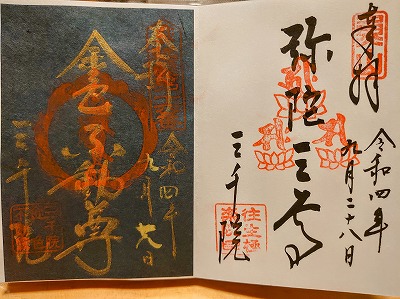 奉拝
令和四年
九月二十八日
弥陀三尊
三千院
往生極
奉拝
令和四年
九月 日
金色不動尊
三千院